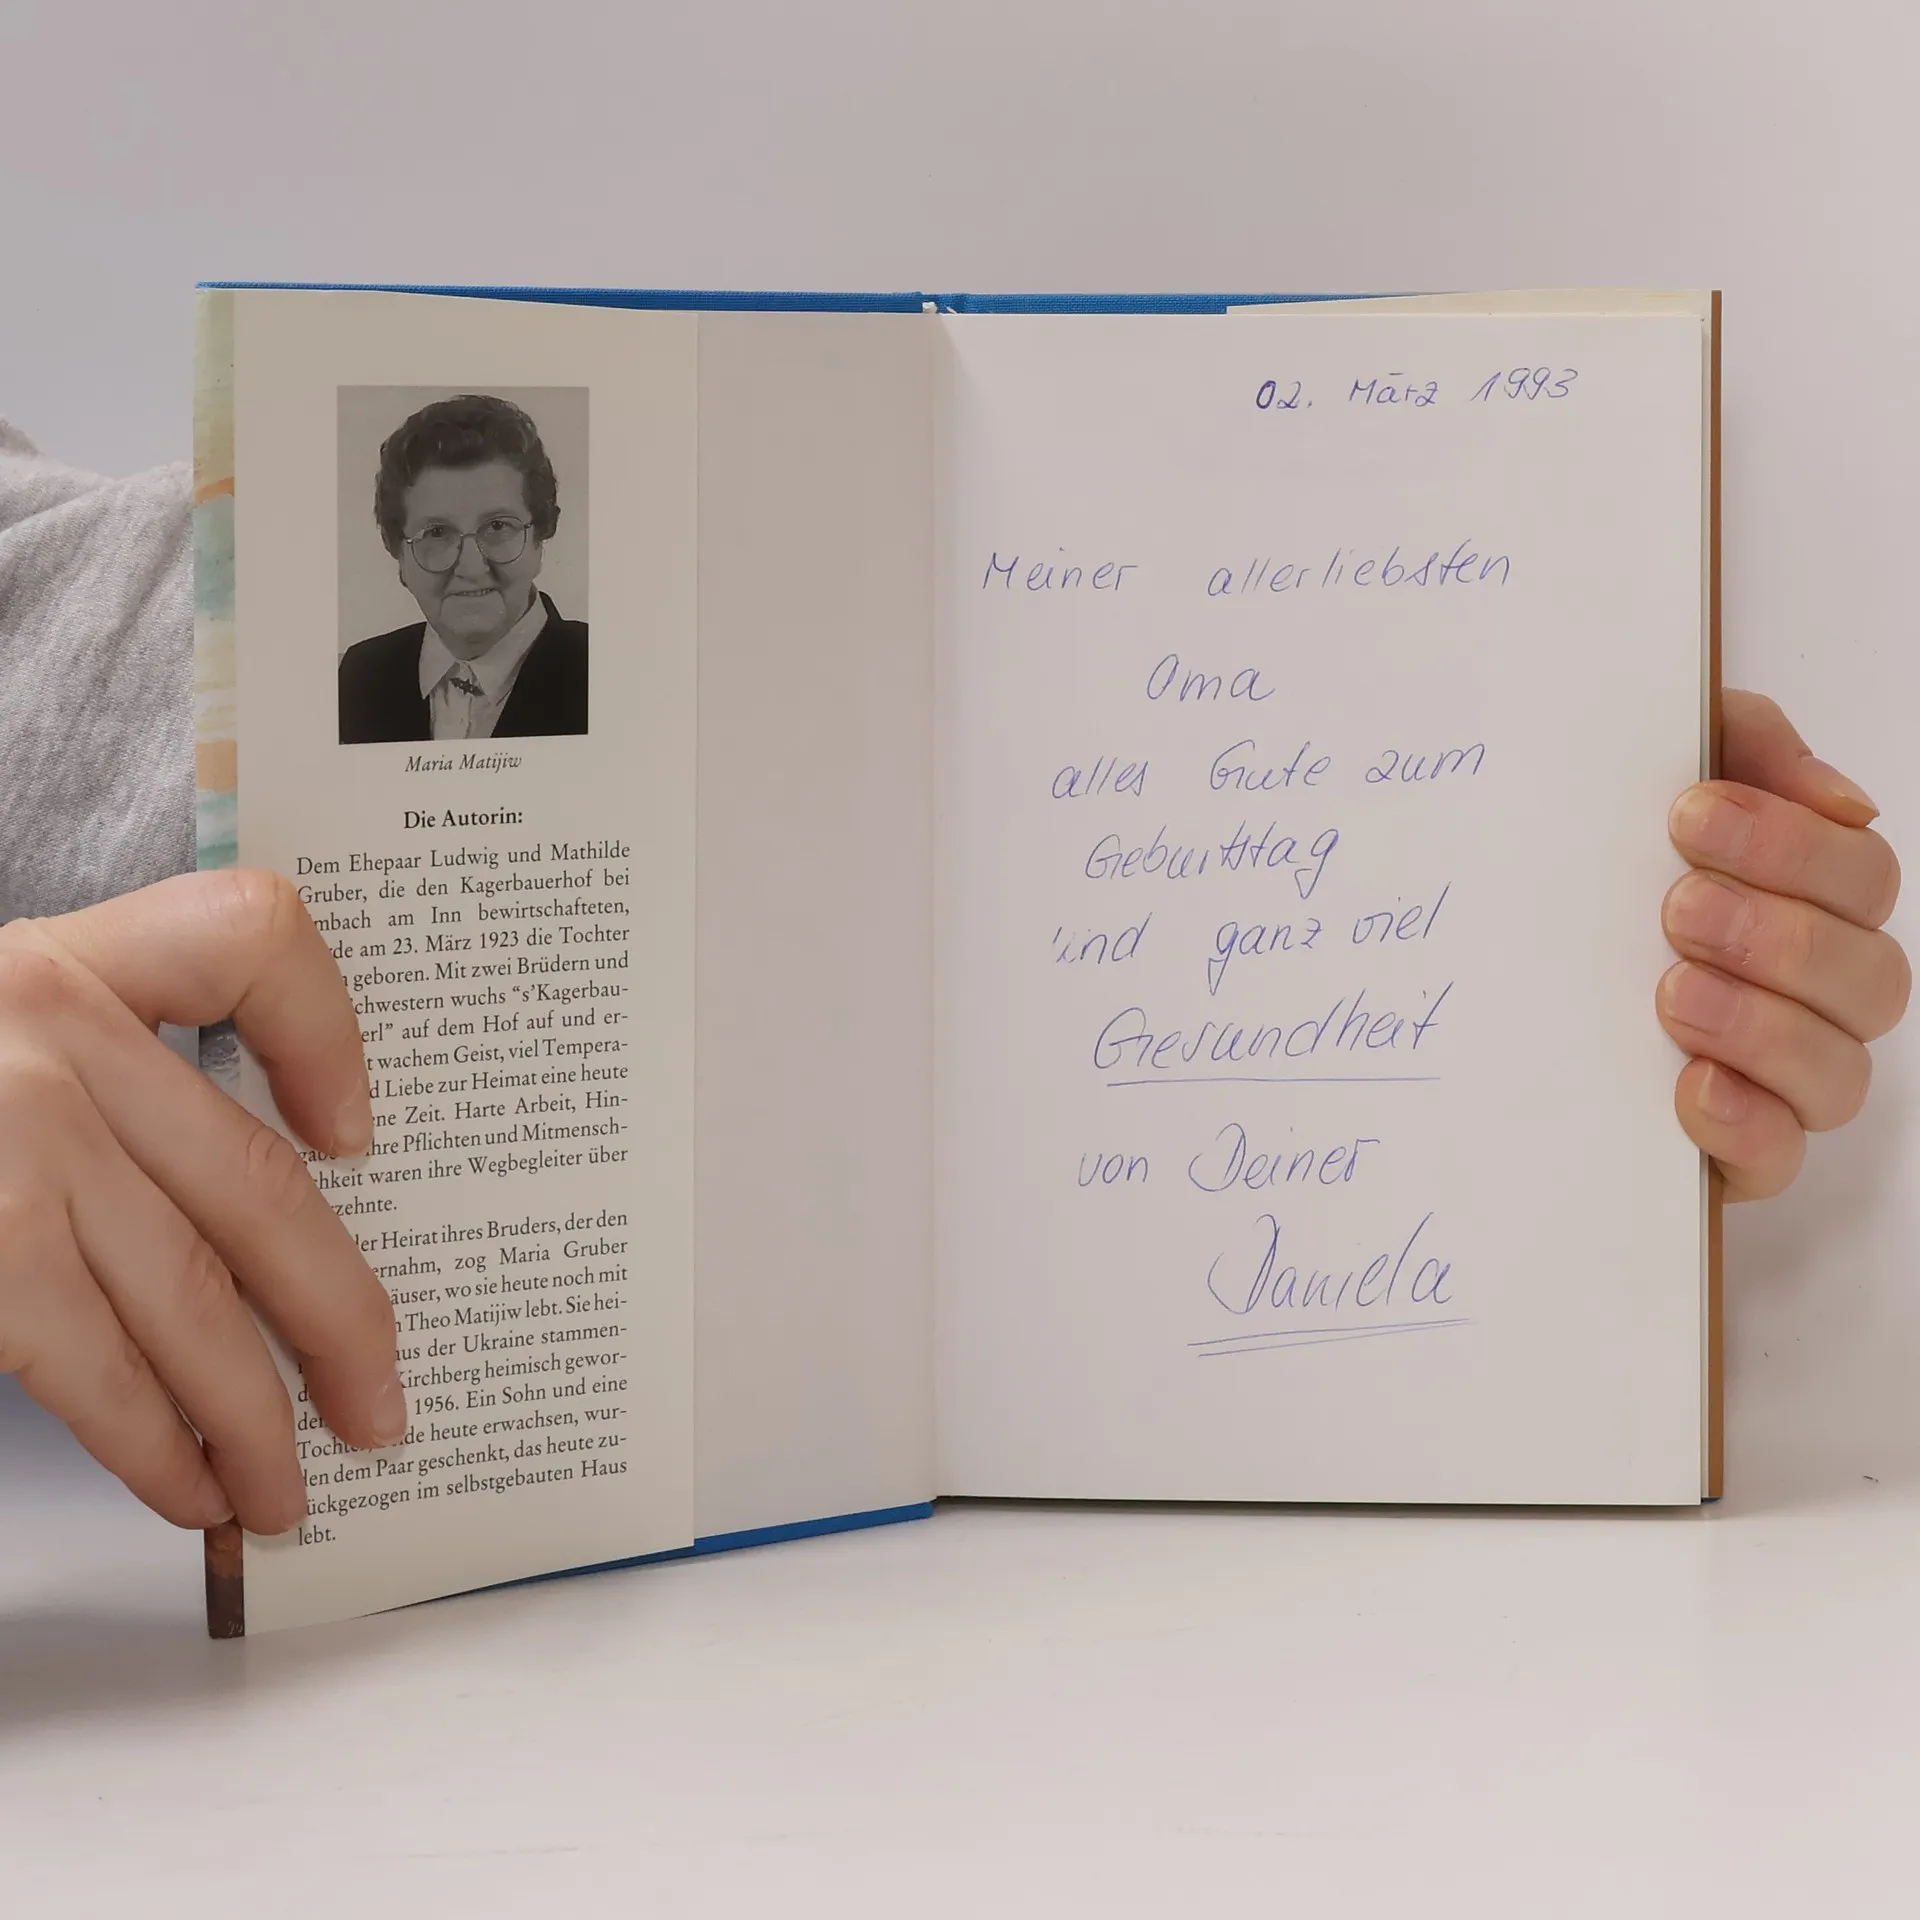 Maria Matijiw
Die Autorin:
Dem Ehepaar Ludwig und Mathilde
Gruber, die den Kagerbauerhof bei
am Inn bewirtschafteten,
am 23. März 1923 die Tochter
geboren. Mit zwei Brüdern und
wuchs “s’Kagerbau-
auf dem Hof auf und er-
wachem Geist, viel Tempera-
Liebe zur Heimat eine heute
Zeit. Harte Arbeit, Hin-
Pflichten und Mitmensch-
waren ihre Wegbegleiter über
Heirat ihres Bruders, der den
zog Maria Gruber
wo sie heute noch mit
Theo Matijiw lebt. Sie hei-
der Ukraine stammen-
Kirchberg heimisch gewor-
1956. Ein Sohn und eine
heute erwachsen, wur-
den dem Paar geschenkt, das heute zu-
rückgezogen im selbstgebauten Haus
lebt.
02. März 1993
Meiner allerliebsten
Oma
alles Gute zum
Geburtstag
und ganz viel
Gesundheit
von Deiner
Daniela